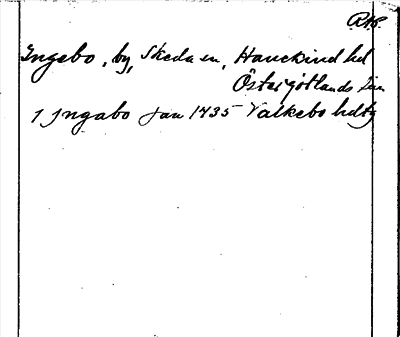 RAP.
Ingebo, by, Skeda sn, Hanekind hd
Östergötlands län
1 Jngabo Jan 1435 Valkebo hdtg